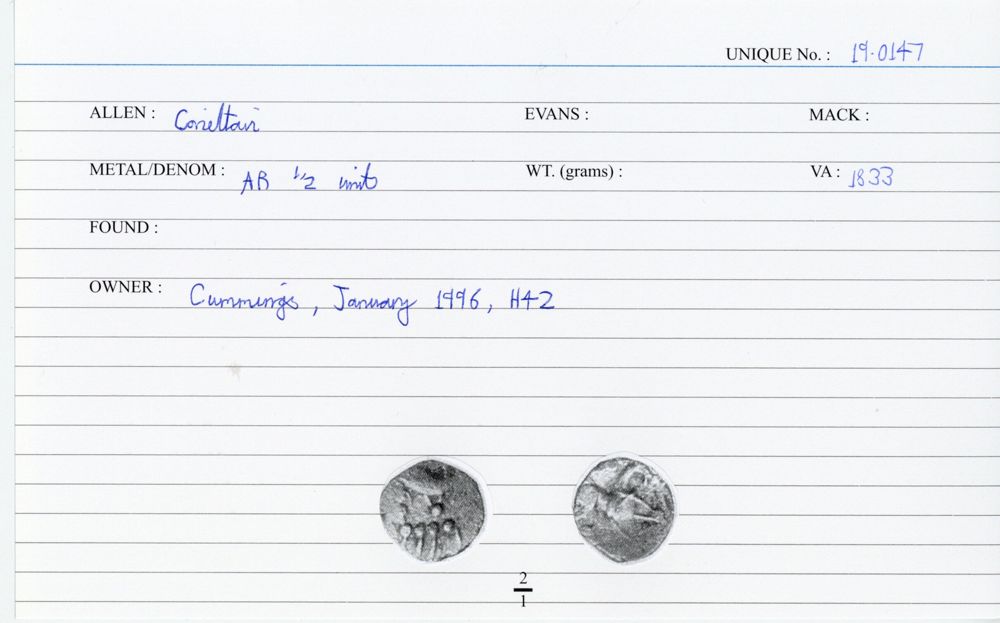 UNIQUE No. : 19.0147
ALLEN : Corieltavi EVANS : MACK :
METAL/DENOM : AR 1/2 unit WT. (grams) : VA : 1833
FOUND :
OWNER : Cummings, January 1996, H42
2
1